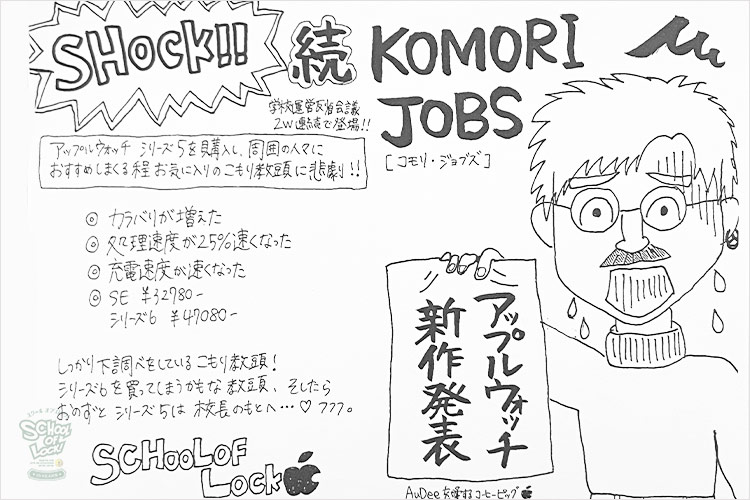 SHOCK!!
続
KOMORI
JOBS
[コモリ・ジョブズ]
学校運営反省会議
2W連続で登場!!
アップルウォッチ シリーズ5を購入し、周囲の人々に
おすすめしまくる程お気に入りのこもり教頭に悲劇!!
◎ カラバリが増えた
◎ 処理速度が25%速くなった
◎ 充電速度が速くなった
◎ SE ¥32780-
シリーズ6 ¥47080-
しっかり下調べをしているこもり教頭!
シリーズ6を買ってしまうかもな教頭、そしたら
おのずとシリーズ5は校長のもとへ…♡フフフ。
アップルウォッチ
新作発表
SCHOOL OF
LOCK
SCHOOL
OF
LOCK!
AuDeeを愛するコーヒーピッグ